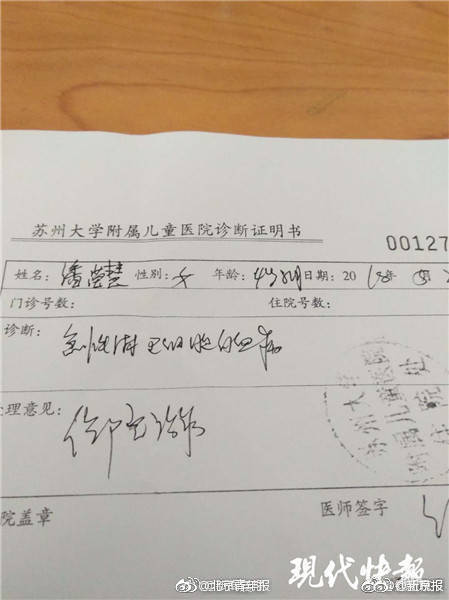 苏州大学附属儿童医院诊断证明书
00127
姓名：潘莹慧 性别：女 年龄：4岁 日期：2018年
门诊号数： 住院号数：
诊断：
急性淋巴细胞白血病
处理意见：
住院治疗
苏州大学
附属儿童医院
住院处
院盖章 医师签字
现代快报
@北京青年报 @新京报